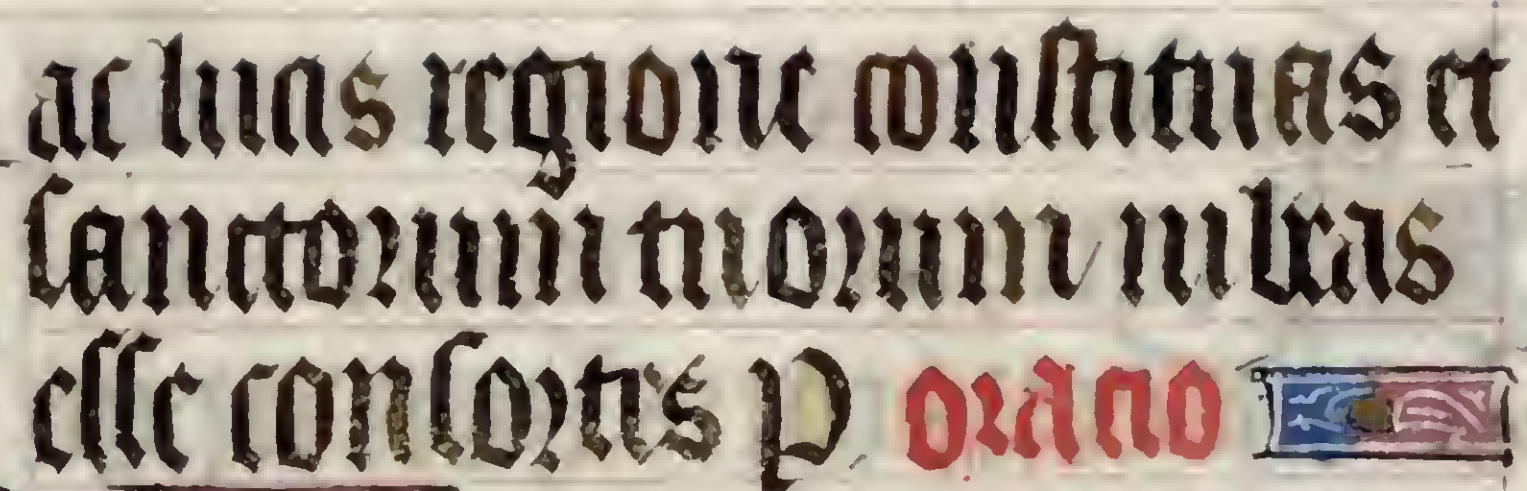 ac lucis regione constituas et
sanctorum tuorum iubeas
esse consortis P. oracio